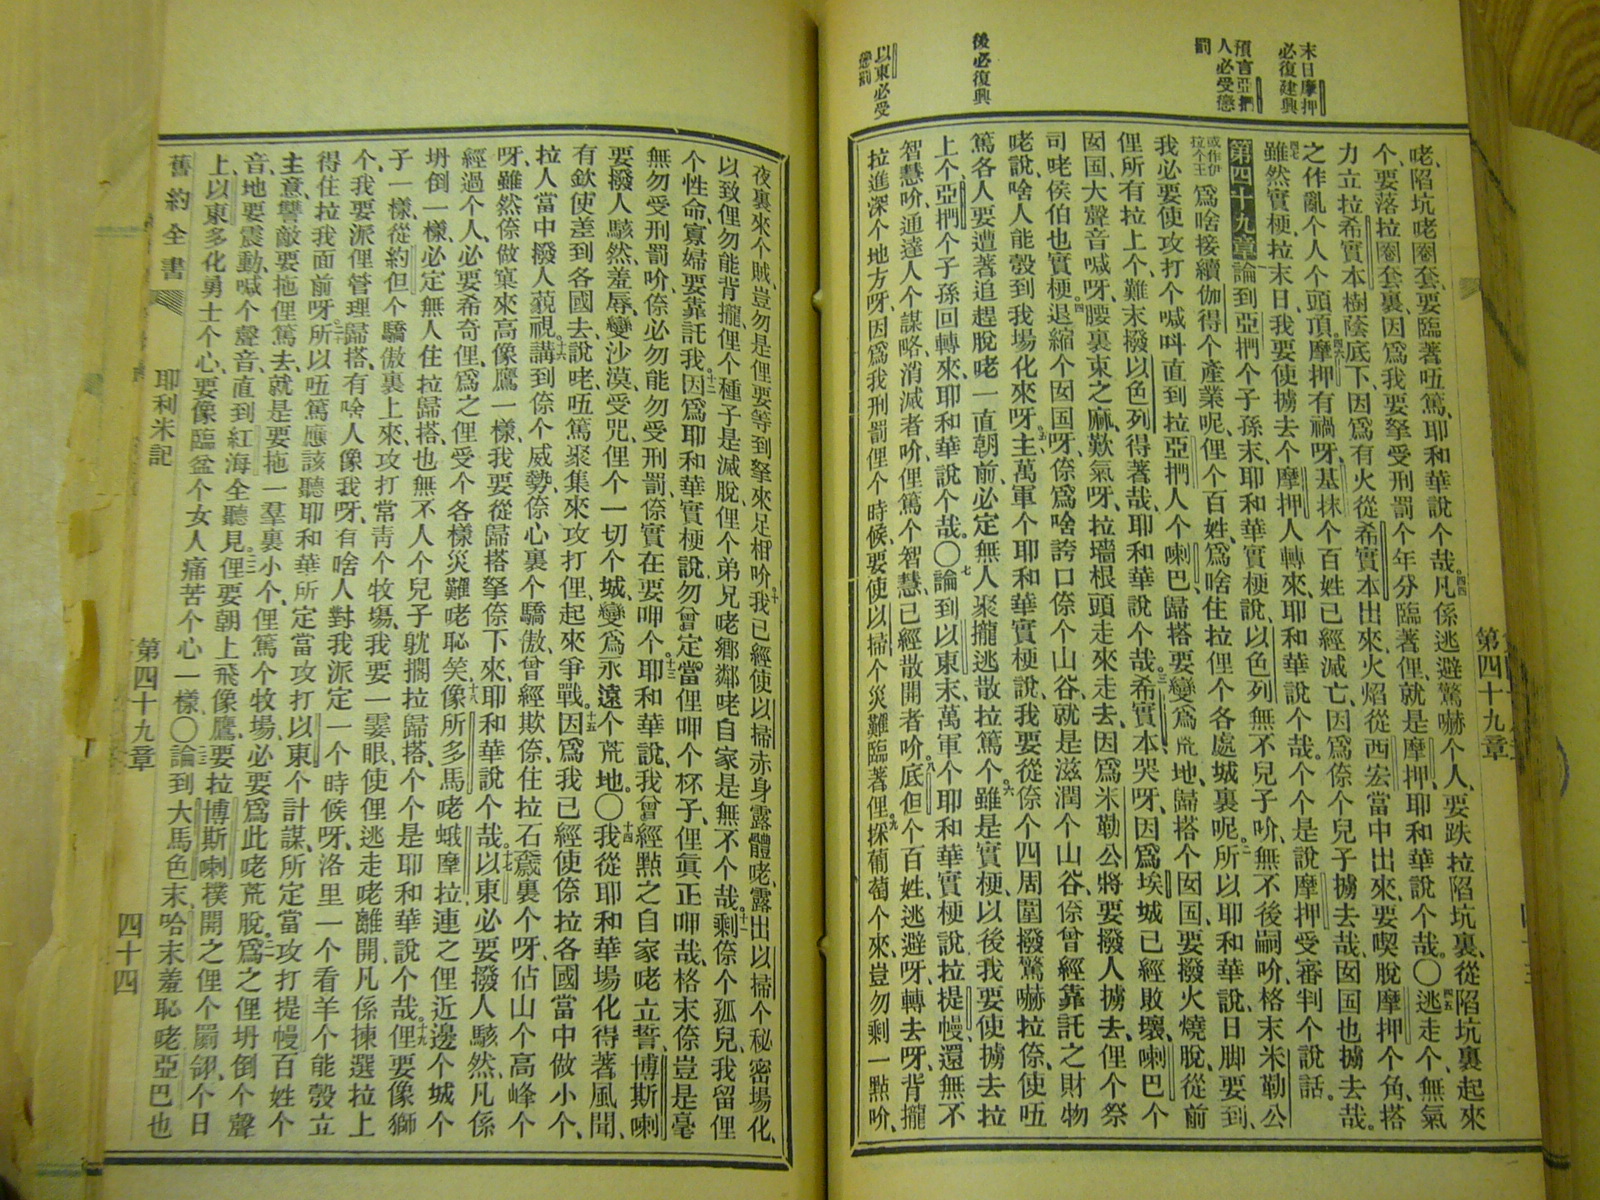 末日摩押
必復建興
預言亞捫
人必受懲
罰
後必復興
以東必受
懲罰
咾、陷坑咾圈套、要臨著㑚篤、耶和華說个哉。凡係逃避驚嚇个人、要跌拉陷坑裏、從陷坑裏起來
个、要落拉圈套裏、因爲我要拏受刑罰个年分臨著俚、就是摩押、耶和華說个哉。〇逃走个、無氣
力立拉希實本樹蔭底下、因爲有火從希實本出來、火焰從西宏當中出來、要喫脫摩押个角、搭
之作亂个人个頭頂。摩押有禍呀、基抹个百姓已經滅亡、因爲倷个兒子擄去哉、囡囯也擄去哉。
雖然實梗、拉末日、我要使擄去个摩押人轉來、耶和華說个哉。个个是說摩押受審判个說話。
第四十九章 論到亞捫个子孫末、耶和華實梗說、以色列無不兒子吤、無不後嗣吤、格末米勒公
或作伊
拉个王
爲啥接續伽得个產業呢、俚个百姓、爲啥住拉俚个各處城裏呢。所以耶和華說、日脚要到、
我必要使攻打个喊呌直到拉亞捫人个喇巴、歸搭要變爲荒地、歸搭个囡囯、要撥火燒脫、從前
俚所有拉上个、難末撥以色列得著哉、耶和華說个哉。希實本哭呀、因爲埃城已經敗壞、喇巴个
囡囯大聲音喊呀、腰裏束之麻、歎氣呀、拉墻根頭走來走去、因爲米勒公將要撥人擄去、俚个祭
司咾侯伯也實梗。退縮个囡囯呀、倷爲啥誇口倷个山谷、就是滋潤个山谷、倷曾經靠託之財物
咾說、啥人能彀到我場化來呀。主萬軍个耶和華實梗說、我要從倷个四周圍撥驚嚇拉倷、使㑚
篤各人要遭著追趕脫咾一直朝前、必定無人聚攏逃散拉篤个。雖是實梗、以後我要使擄去拉
上个亞捫个子孫回轉來、耶和華說个哉。〇論到以東末、萬軍个耶和華實梗說、拉提幔還無不
智慧吤、通達人个謀略消滅者吤、俚篤个智慧已經散開者吤。底但个百姓、逃避呀、轉去呀、背攏
拉進深个地方呀、因爲我刑罰俚个時候、要使以掃个災難臨著俚。採葡萄个來、豈勿剩一點吤、
夜裏來个賊、豈勿是俚要等到拏來足相吤。我已經使以掃赤身露體咾、露出以掃个秘密場化、
以致俚勿能背攏、俚个種子是滅脫、俚个弟兄咾鄉鄰咾自家是無不个哉。剩倷个孤兒、我留俚
个性命、寡婦要靠託我。因爲耶和華實梗說、勿曾定當俚呷个杯子、俚眞正呷哉、格末倷豈是毫
無勿受刑罰吤、倷必勿能勿受刑罰、倷實在要呷个。耶和華說、我曾經點之自家咾立誓、博斯喇
要撥人駭然、羞辱、變沙漠、受咒、俚个一切个城、變爲永遠个荒地。〇我從耶和華場化得著風聞、
有欽使差到各國去、說咾、㑚篤聚集來攻打俚、起來爭戰。因爲我已經使倷拉各國當中做小个、
拉人當中撥人藐視。講到倷个威勢、倷心裏个驕傲、曾經欺倷、住拉石巖裏个呀、佔山个高峰个
呀、雖然倷做窠來高像鷹一樣、我要從歸搭拏倷下來、耶和華說个哉。以東必要撥人駭然、凡係
經過个人、必要希奇俚、爲之俚受个各樣災難咾恥笑。像所多馬咾蛾摩拉連之俚近邊个城个
坍倒一樣、必定無人住拉歸搭、也無不人个兒子躭擱拉歸搭、个个是耶和華說个哉。俚要像獅
子一樣、從約但个驕傲裏上來、攻打常靑个牧塲、我要一霎眼使俚逃走咾離開、凡係揀選拉上
个、我要派俚管理歸搭、有啥人像我呀、有啥人對我派定一个時候呀、洛里一个看羊个能彀立
得住拉我面前呀。所以㑚篤應該聽耶和華所定當攻打以東个計謀、所定當攻打提幔百姓个
主意、讐敵要拖俚篤去、就是要拖一羣裏小个、俚篤个牧場必要爲此咾荒脫。爲之俚坍倒个聲
音、地要震動、喊个聲音、直到紅海全聽見。俚要朝上飛像鷹、要拉博斯喇撲開之俚个翅膀、个日
上、以東多化勇士个心、要像臨盆个女人痛苦个心一樣。〇論到大馬色末、哈末羞恥咾、亞巴也
舊約全書
耶利米記
第四十九章
四十四
第四十九章